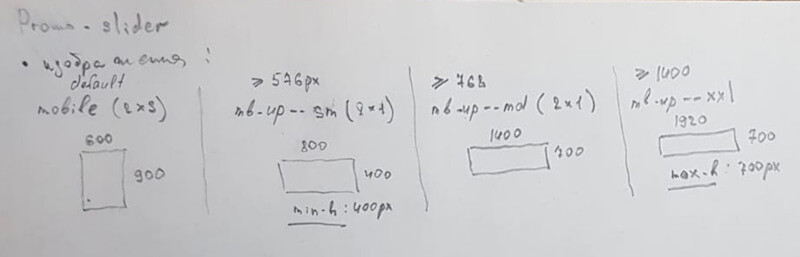 Promo - slider
• изображения :
default
mobile (2x3)
600
900
≥ 576px
mb-up--sm (2x1)
800
400
min-h : 400px
≥ 768
mb-up--md (2x1)
1400
700
≥ 1400
mb-up--xxl
1920
700
max-h : 700px